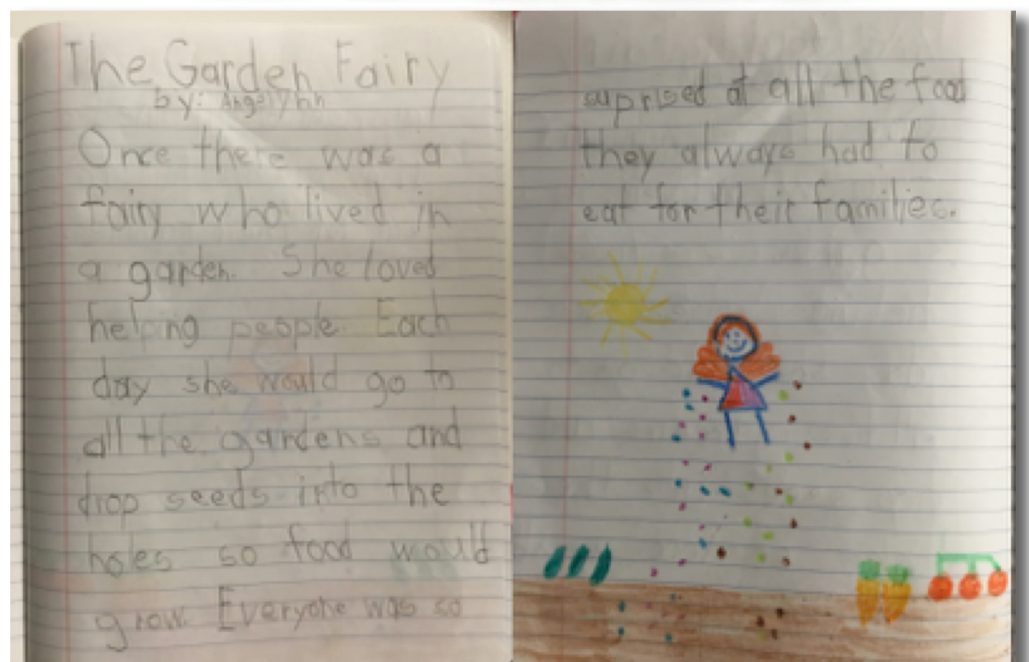 The Garden Fairy
by: Angelynn
Once there was a
fairy who lived in
a garden. She loved
helping people. Each
day she would go to
all the gardens and
drop seeds into the
holes so food would
grow. Everyone was so
suprised at all the food
they always had to
eat for their families.